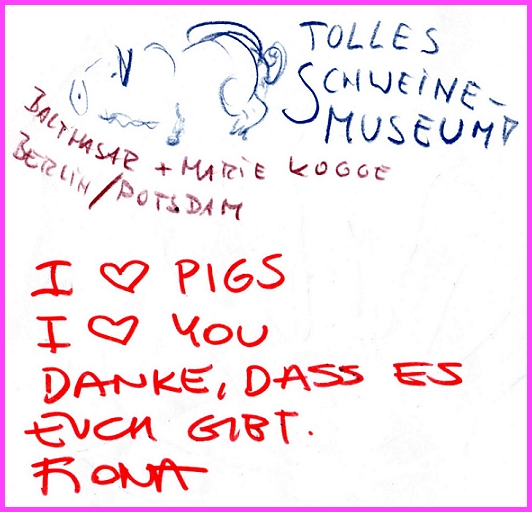 TOLLES
SCHWEINE-
MUSEUM!
BALTHASAR + MARIE KOGGE
BERLIN/POTSDAM
I ♡ PIGS
I ♡ YOU
DANKE, DASS ES
EUCH GIBT.
FIONA